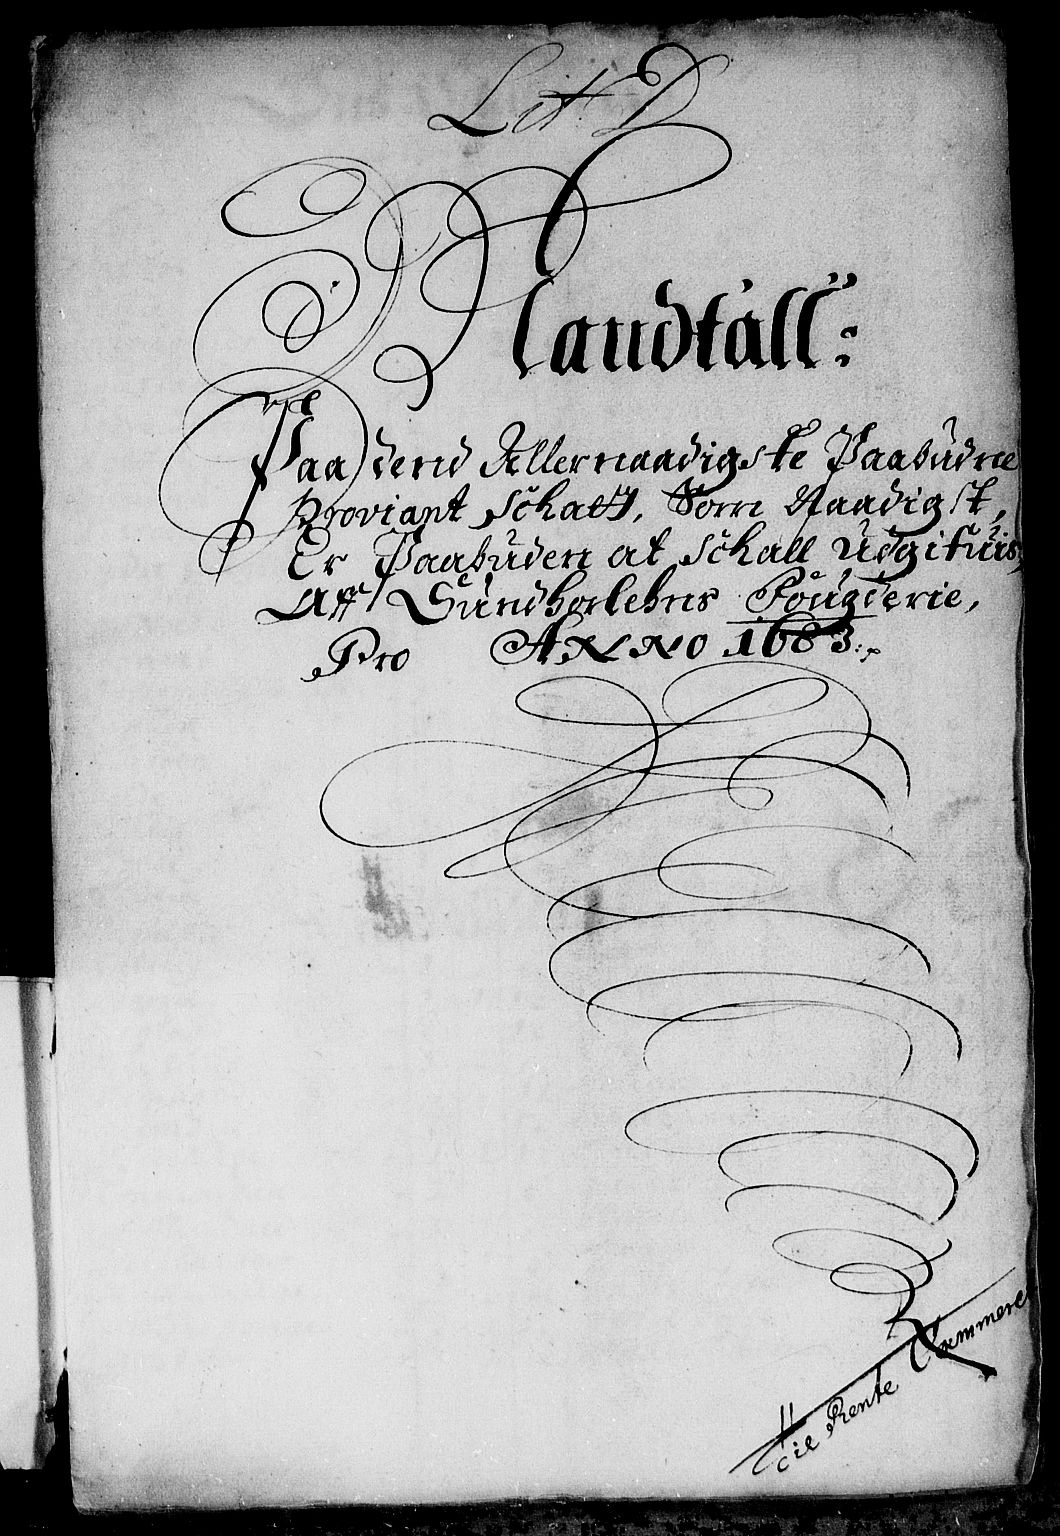 Lit. D
Mandtall:
Paa dend Allernaadigste Paabudne
Proviant Schatt, Som Naadigst,
Er Paabuden at schall Udgifuis,
Aff Sundhorlehns Fougderie,
Pro ANNO 1683:
Til Rente Cammeret